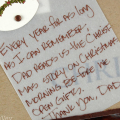 EVERY YEAR FOR AS LONG
AS I CAN REMEMBER,
DAD READS US THE CHRIST
MAS STORY ON CHRISTMAS
MORNING BEFORE WE
OPEN GIFTS.
THANK YOU, DAD